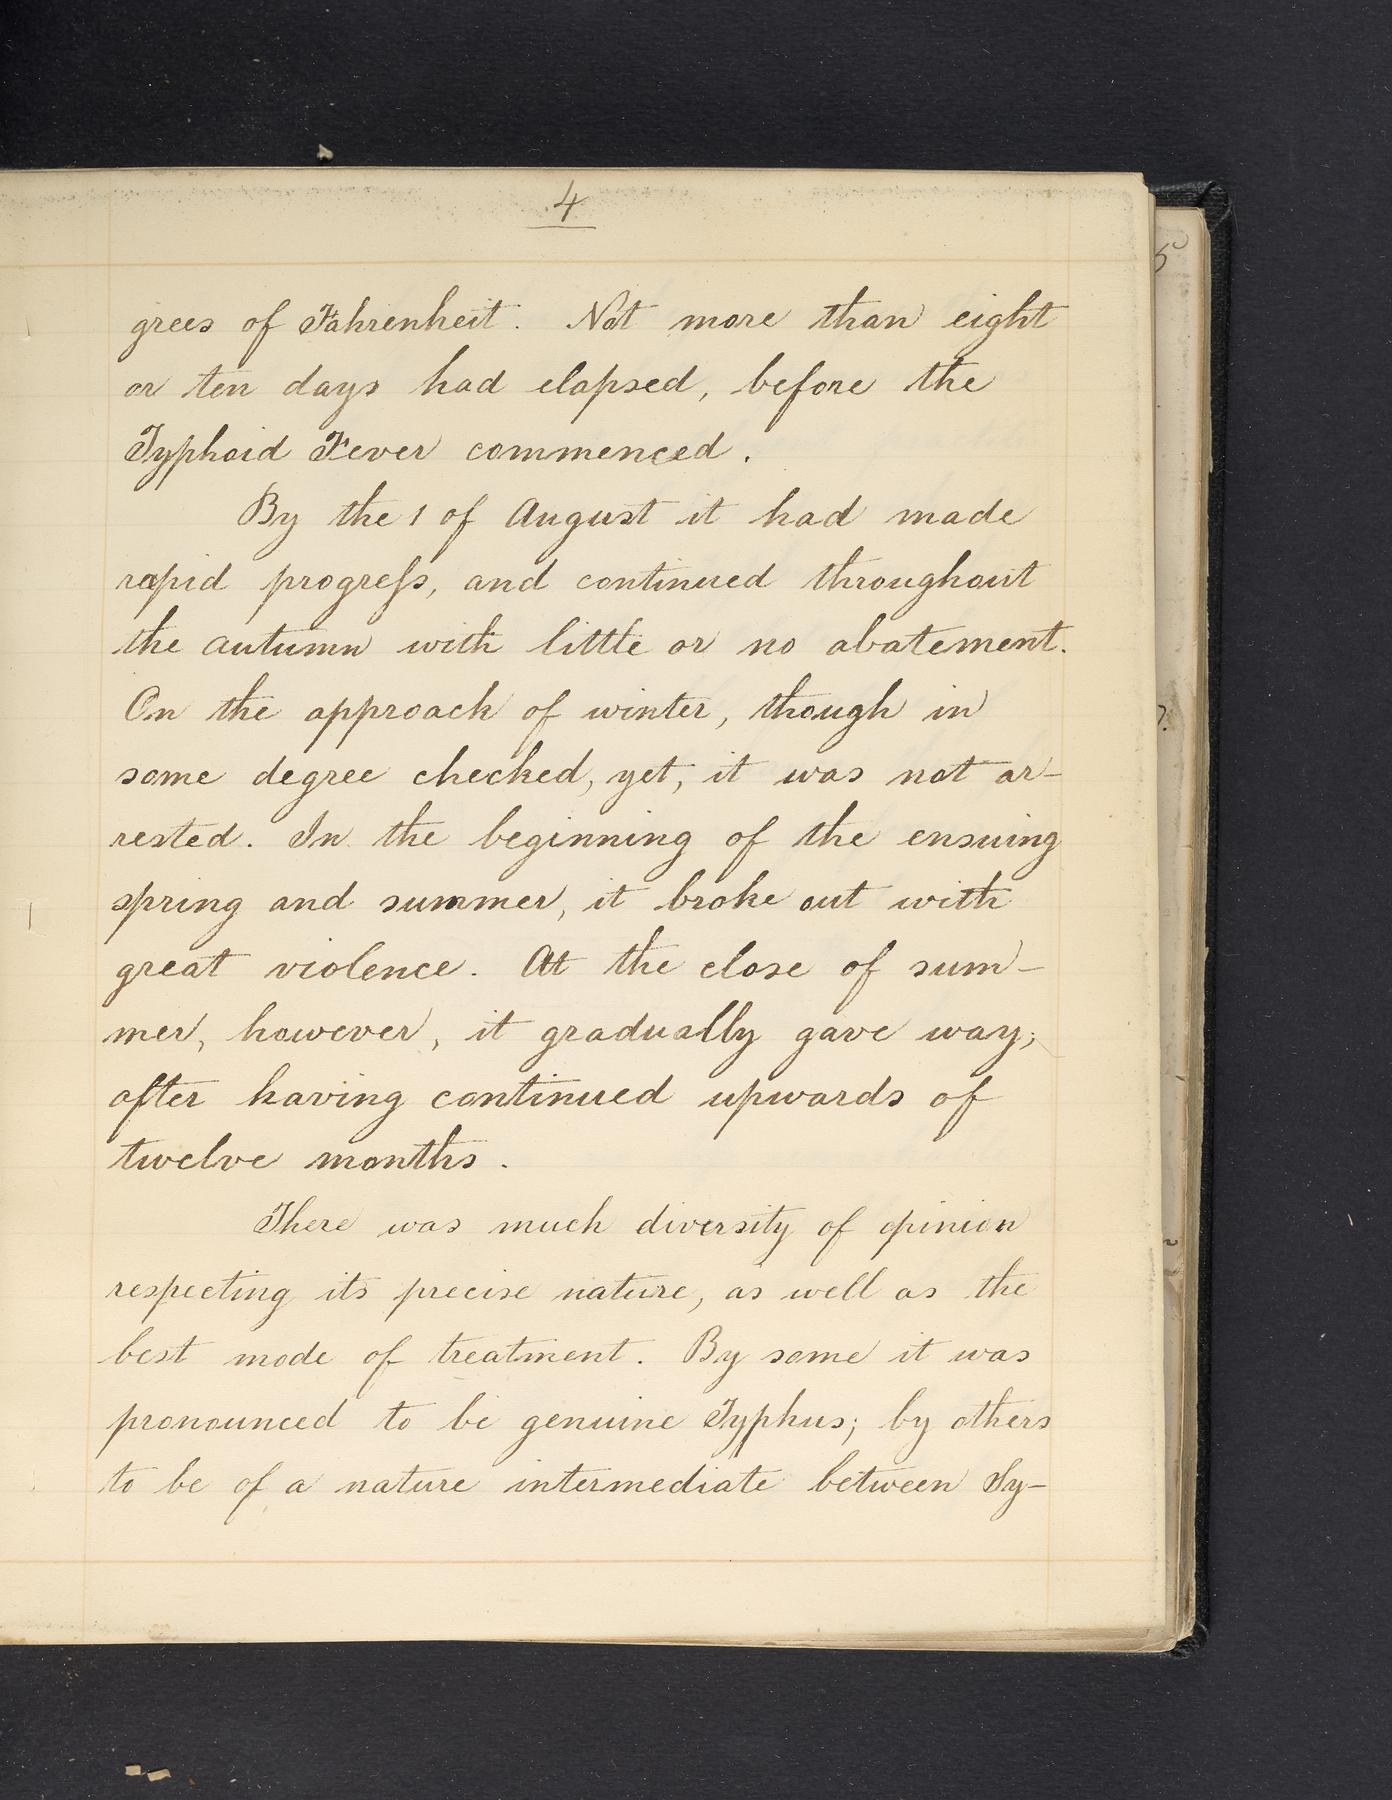 4
grees of Fahrenheit. Not more than eight
or ten days had elapsed, before the
Typhoid Fever commenced.
By the 1 of August it had made
rapid progreſs, and continued throughout
the autumn with little or no abatement.
On the approach of winter, though in
some degree checked, yet, it was not ar-
rested. In the beginning of the ensuing
spring and summer, it broke out with
great violence. At the close of sum-
mer, however, it gradually gave way;
after having continued upwards of
twelve months.
There was much diversity of opinion
respecting its precise nature, as well as the
best mode of treatment. By some it was
pronounced to be genuine Typhus; by others
to be of a nature intermediate between Sy-
5